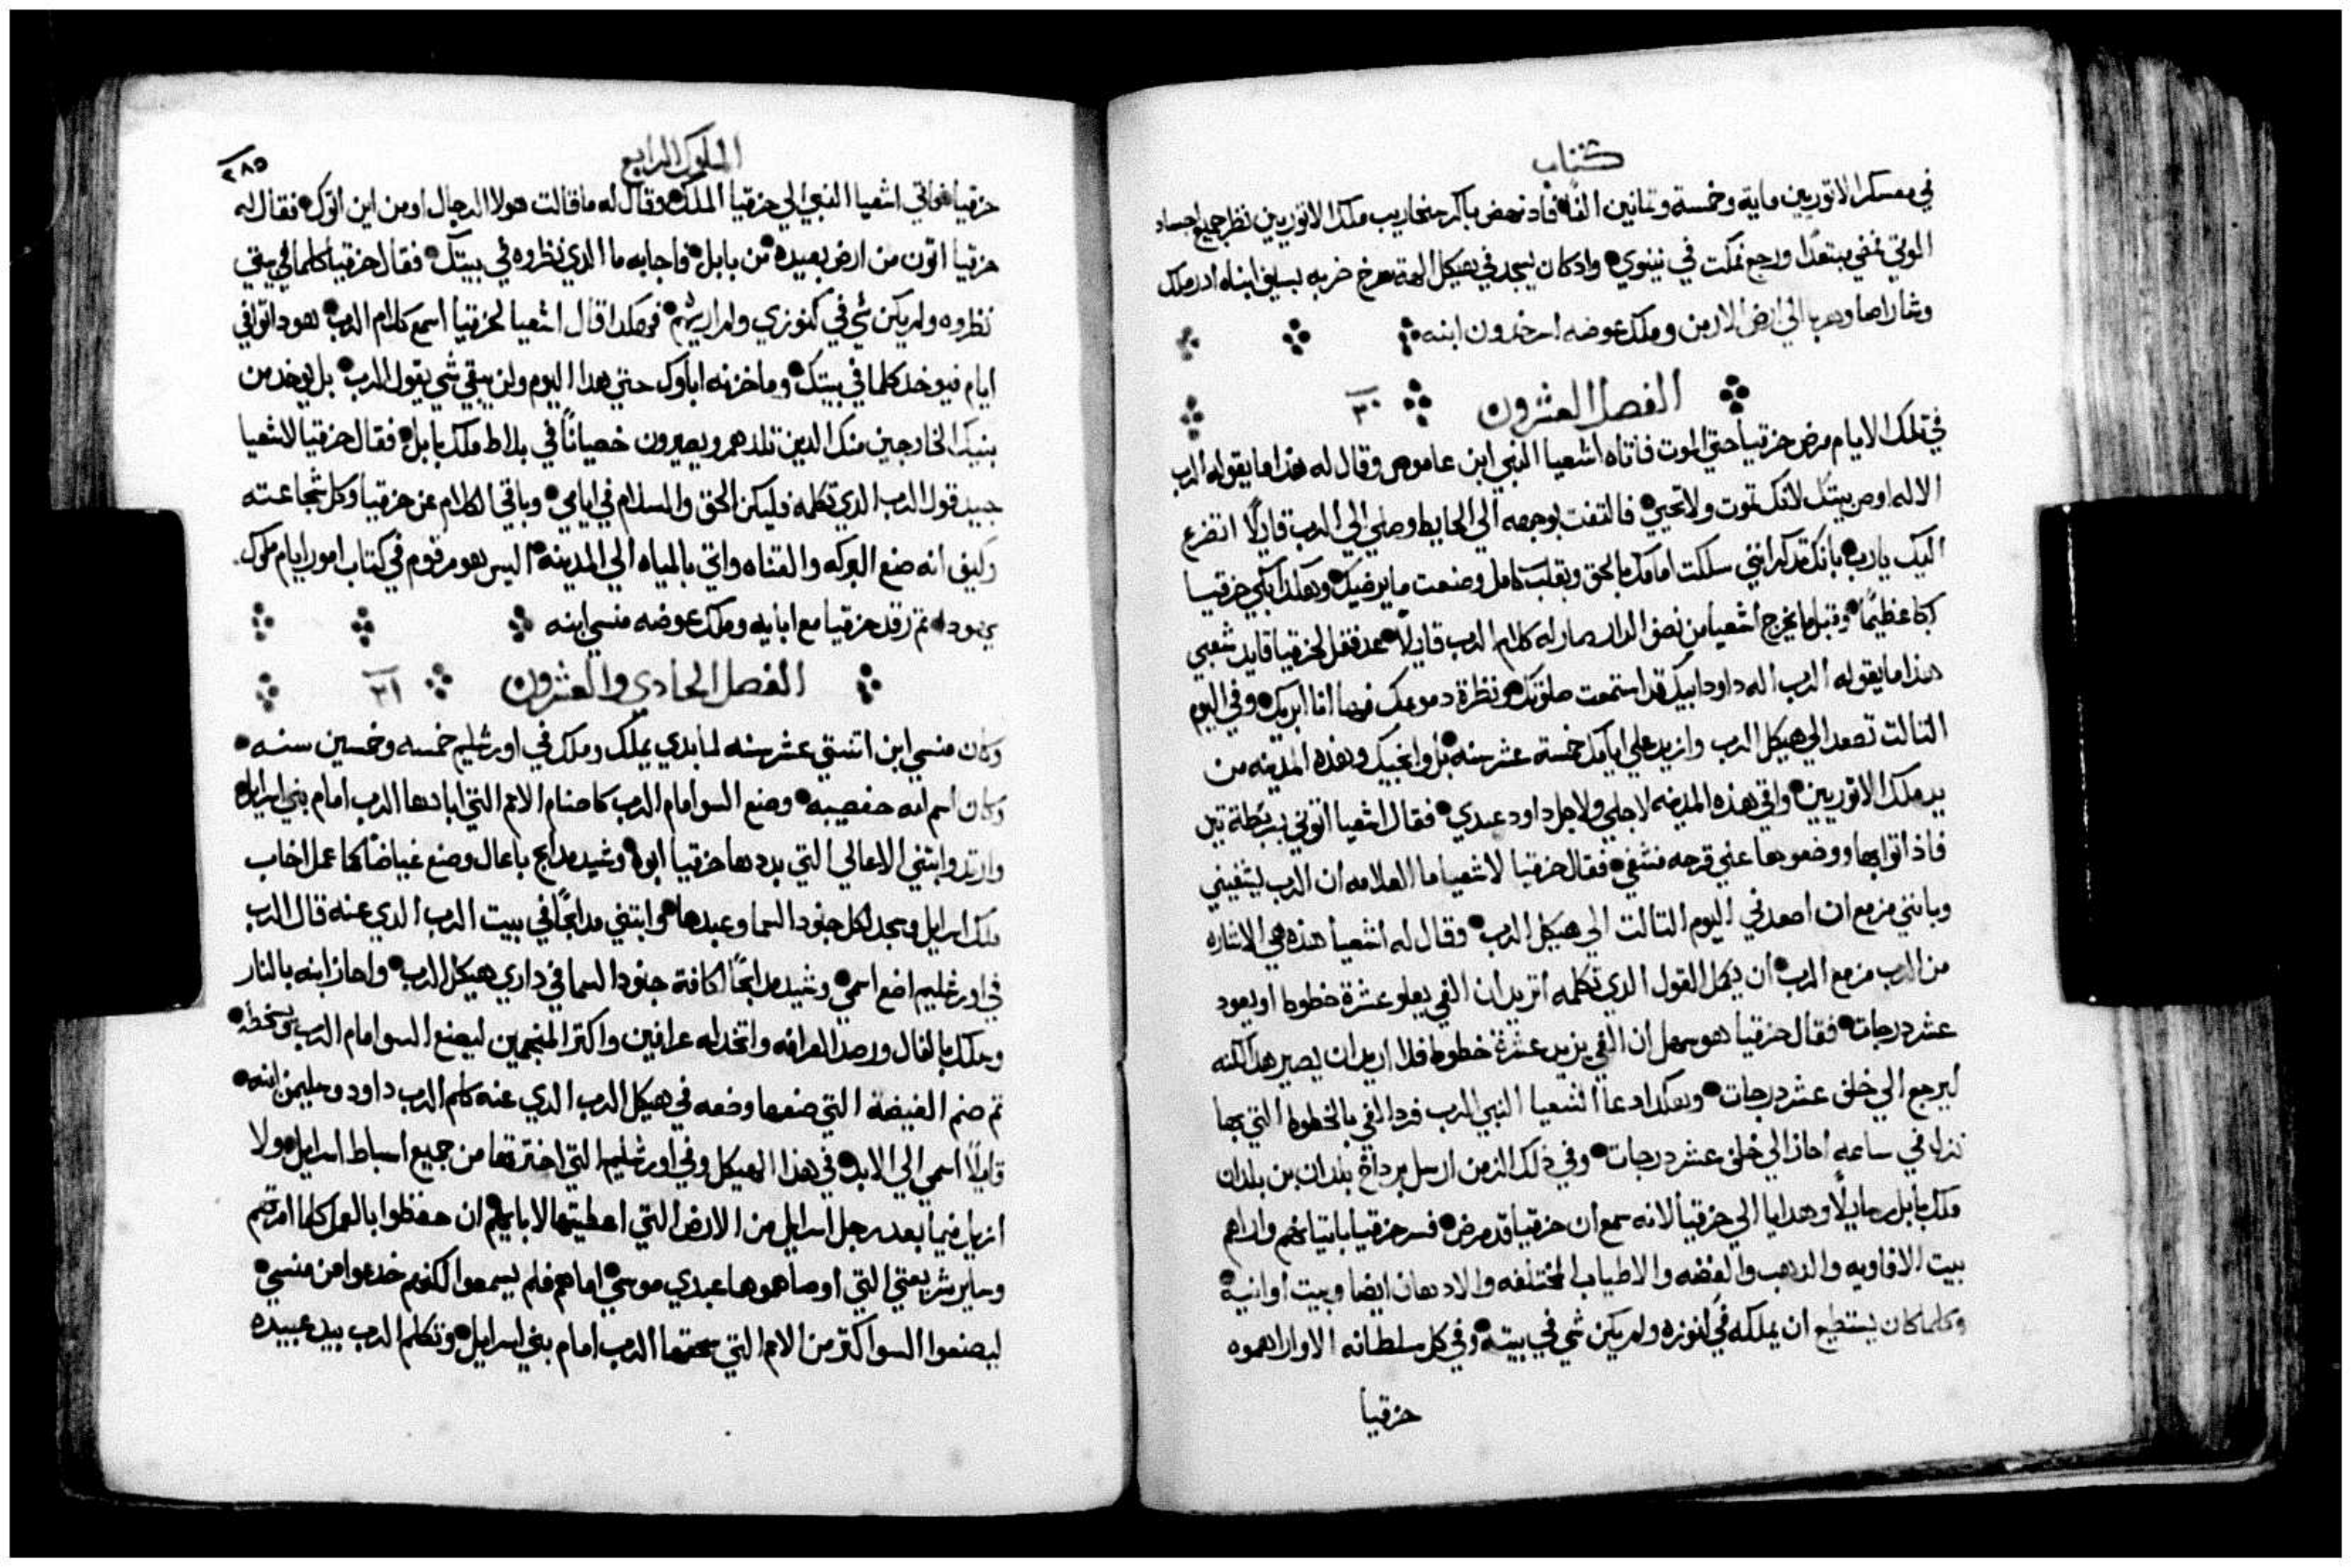 كتاب
في معسكر الاتوريين ماية وخمسة وثمانين الفًا فاد نهض باكر سنحاريب ملك الاتوريين نظر جميع اجساد
الموتي فمضي مبتعدًا ورجع فمكت في نينوي وادكان يسجد في هيكل الهة نسرخ ضربه بسيف ابناه ادرملك
وشاراصار وهربا الي ارض الارمن وملك عوضه اسرحدون ابنه
الفصل العشرون ٢٠
في تلك الايام مرض حزقيا حتي الموت فاتاه اشعيا النبي ابن عاموص وقال له هذا ما يقوله الرب
الاله اوص بيتك لانك تموت ولا تحيي فالتفت بوجهه الي الحايط وصلي الي الرب قايلًا اتضرع
اليك يارب بانك تدكر انني سلكت امامك بالحق وبقلب كامل وصنعت ما يرضيك وهكدا بكي حزقيا
بكا عظيمًا وقبل ما يخرج اشعيا من نصف الدار صار له كلام الرب قايلًا عد فقل لحزقيا قايد شعبي
هذا ما يقوله الرب اله داود ابيك قد استمعت صلوتك ونظرة دموعك فها انا ابريك وفي اليوم
التالت تصعد الي هيكل الرب وازيد علي ايامك خمسة عشر سنه بل وانجيك وهذه المدينه من
يد ملك الاتوريين واقي هذه المدينه لاجلي ولاجل داود عبدي فقال اشعيا اتوني بربطة تين
فاذ اتوا بها ووضعوها علي قرحه فشفي فقال حزقيا لاشعيا ما العلامه ان الرب يشفيني
وبانني مزمع ان اصعد في اليوم التالت الي هيكل الرب وقال له اشعيا هذه هي الاشاره
من الرب مزمع الرب ان يكمل القول الذي تكلمه اتريد ان الفي يعلو عشرة خطوط او يعود
عشر درجات فقال حزقيا هو سهل ان الفي يزيد عشرة خطوط فلا اريد ان يصير هدا لكنه
ليرجع الي خلف عشر درجات وهكدا دعا اشعيا النبي الرب فرد الفي بالخطوط التي بها
نزل في ساعه احاز الي خلف عشر درجات وفي ذلك الزمن ارسل برداخ بلدان بن بلدان
ملك بابل رسايلًا وهدايا الي حزقيا لانه سمع ان حزقيا قد مرض فسر حزقيا باتيانهم واراهم
بيت الافاويه والدهب والفضه والاطياب المختلفه والادهان ايضا وبيت اوانيه
وكلما كان يستطيع ان يملكه في كنوزه ولم يكن شي في بيته وفي كل سلطانه الا واراهموه
حزقيا
الملوك الرابع
٢٨٥
حزقيا فاتي اشعيا النبي الي حزقيا الملك وقال له ما قالت هولا الرجال او من اين اتوك فقال له
حزقيا اتون من ارض بعيده من بابل فاجابه ما الدي نظروه في بيتك فقال حزقيا كلما في بيتي
نظروه ولم يكن شي في كنوزي ولم اريهم فهكدا قال اشعيا لحزقيا اسمع كلام الرب هودا توافي
ايام فيوخد كلما في بيتك وما خزنه اباوك حتي هدا اليوم ولن يبقي شي يقول الرب بل يوخد من
بنيك الخارجين منك الدين تلدهم ويصيرون خصيانًا في بلاط ملك بابل فقال حزقيا لاشعيا
جيد قول الرب الدي تكلمه فليكن الحق والسلام في ايامي وباقي الكلام عن حزقيا وكل شجاعته
وكيف انه صنع البركه والقناه واتي بالمياه الي المدينه اليس هو مرقوم في كتاب امور ايام ملوك
يهودا تم رقد حزقيا مع ابايه وملك عوضه منسي ابنه
الفصل الحادي والعشرون ٢١
وكان منسي ابن اتنتي عشر سنه لما بدي يملك وملك في اورشليم خمسه وخمسين سنه
وكان اسم امه حفصيبه وصنع السو امام الرب كاصنام الامم التي ابادها الرب امام بني اسرايل
وارتد وابتني الاعالي التي بددها حزقيا ابوه وشيد مدابح باعال وصنع غياضًا كما عمل اخاب
ملك اسرايل وسجد لكل جنود السما وعبدها وابتني مدابحًا في بيت الرب الدي عنه قال الرب
في اورشليم اضع اسمي وشيد مدابحًا لكافة جنود السما في داري هيكل الرب واجاز ابنه بالنار
وملك بالفال ورصد العرافه واتخد له عرافين واكتر المنجمين ليصنع السو امام الرب ويسخطه
تم صنم الغيضة التي صنعها وضعه في هيكل الرب الدي عنه كلم الرب داود وسليمن ابنه
قايلًا اسمي الي الابد في هذا الهيكل وفي اورشليم التي اخترتها من جميع اسباط اسرايل ولا
ازيل فيما بعد رجل اسرايل من الارض التي اعطيتها لابايهم ان حفظوا بالعمل كلما امرتهم
وساير شريعتي التي اوصاهموها عبدي موسي اما هم فلم يسمعوا لكنهم خدعوا من منسي
ليصنعوا السو اكتر من الامم التي سحقها الرب امام بني اسرايل وتكلم الرب بيد عبيده